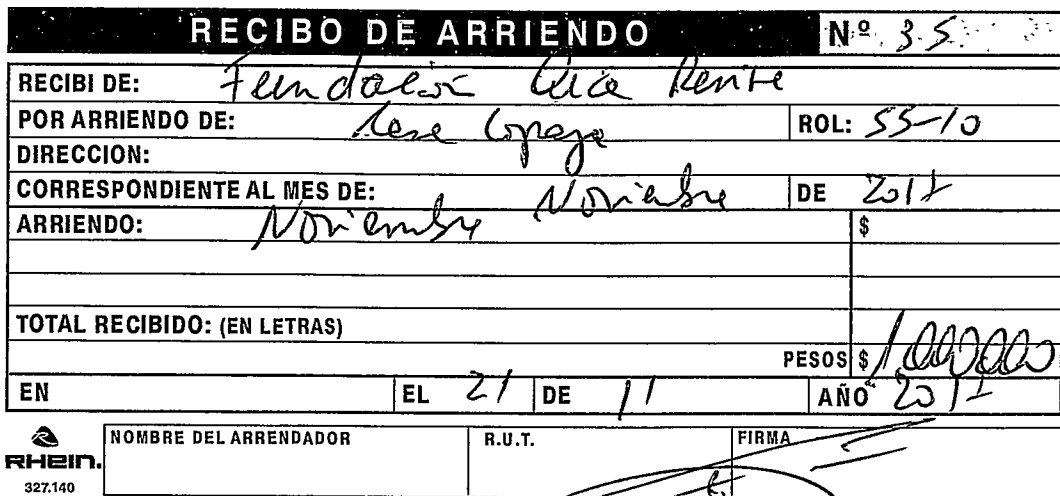 RECIBO DE ARRIENDO Nº 35
RECIBI DE: Fundación
POR ARRIENDO DE: ROL: 55-10
DIRECCION:
CORRESPONDIENTE AL MES DE: Noviembre DE 2017
ARRIENDO: Noviembre $
TOTAL RECIBIDO: (EN LETRAS)
PESOS $ 1.000.000
EN EL 21 DE 11 AÑO 2017
NOMBRE DEL ARRENDADOR R.U.T. FIRMA
RHEIN.
327.140